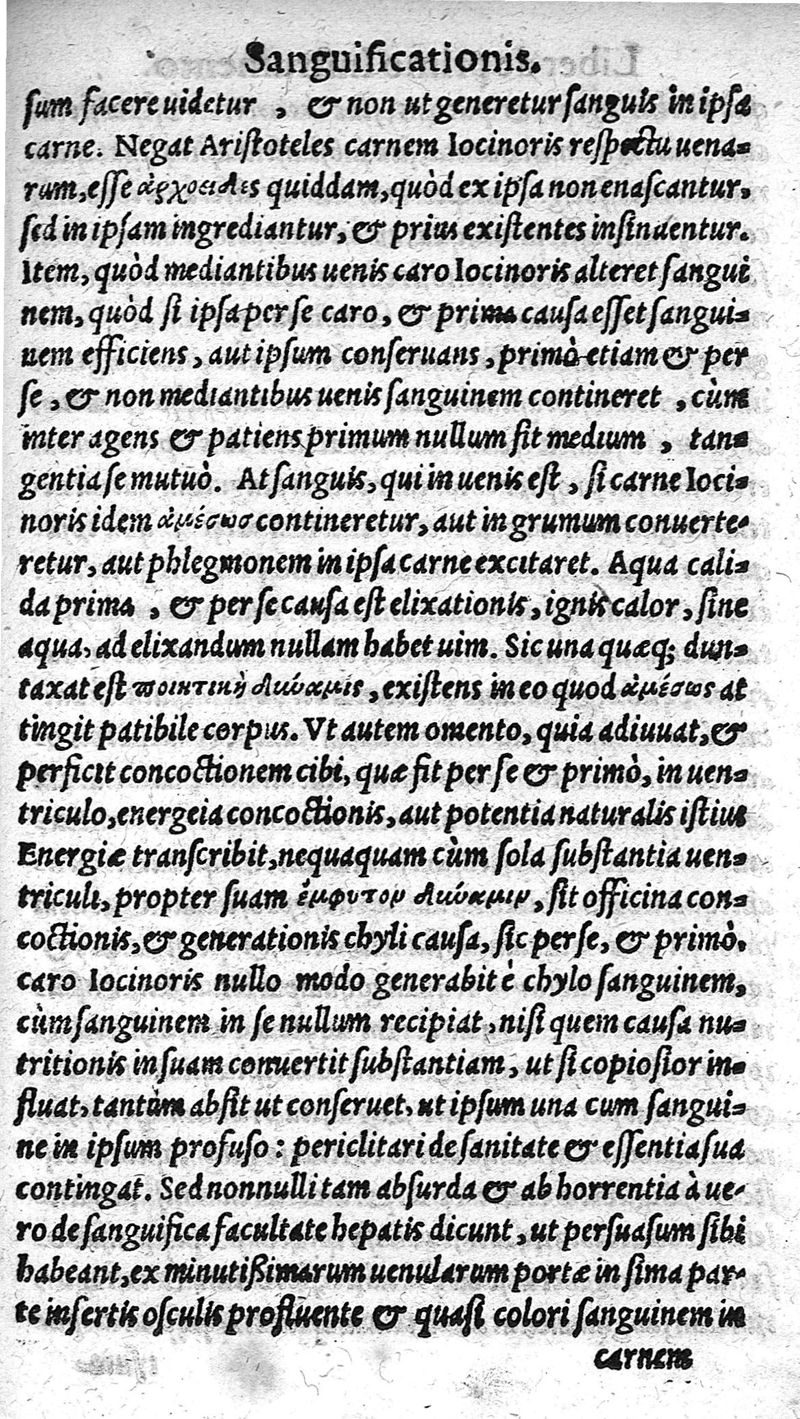 Sanguificationis.
sum facere uidetur , & non ut generetur sanguis in ipsa
carne. Negat Aristoteles carnem Iocinoris respectu uena-
rum, esse ἀρχοειδὲς quiddam, quòd ex ipsa non enascantur,
sed in ipsam ingrediantur, & prius existentes insinuentur.
Item, quòd mediantibus uenis caro Iocinoris alteret sangui
nem, quòd si ipsa per se caro, & prima causa esset sangui-
nem efficiens, aut ipsum conseruans, primò etiam & per
se, & non mediantibus uenis sanguinem contineret , cùm
inter agens & patiens primum nullum sit medium , tan-
gentia se mutuò. At sanguis, qui in uenis est, si carne Ioci-
noris idem ἀμέσωσ contineretur, aut in grumum conuerte-
retur, aut phlegmonem in ipsa carne excitaret. Aqua cali-
da prima , & per se causa est elixationis, ignis calor, sine
aqua, ad elixandum nullam habet uim. Sic una quæq; dun-
taxat est ποιητικὴ δύναμις, existens in eo quod ἀμέσως at
tingit patibile corpus. Vt autem omento, quia adiuuat, &
perficit concoctionem cibi, quæ fit per se & primò, in uen-
triculo, energeia concoctionis, aut potentia naturalis istius
Energiæ transcribit, nequaquam cùm sola substantia uen-
triculi, propter suam ἔμφυτον δύναμιν, sit officina con-
coctionis, & generationis chyli causa, sic per se, & primò.
caro Iocinoris nullo modo generabit è chylo sanguinem,
cùm sanguinem in se nullum recipiat, nisi quem causa nu-
tritionis in suam conuertit substantiam, ut si copiosior in-
fluat, tantùm absit ut conseruet, ut ipsum una cum sangui-
ne in ipsum profuso: periclitari de sanitate & essentia sua
contingat. Sed nonnulli tam absurda & abhorrentia à ue-
ro de sanguifica facultate hepatis dicunt, ut persuasum sibi
habeant, ex minutißimarum uenularum portæ in sima par-
te insertis osculis profluente & quasi colori sanguinem in
carnem